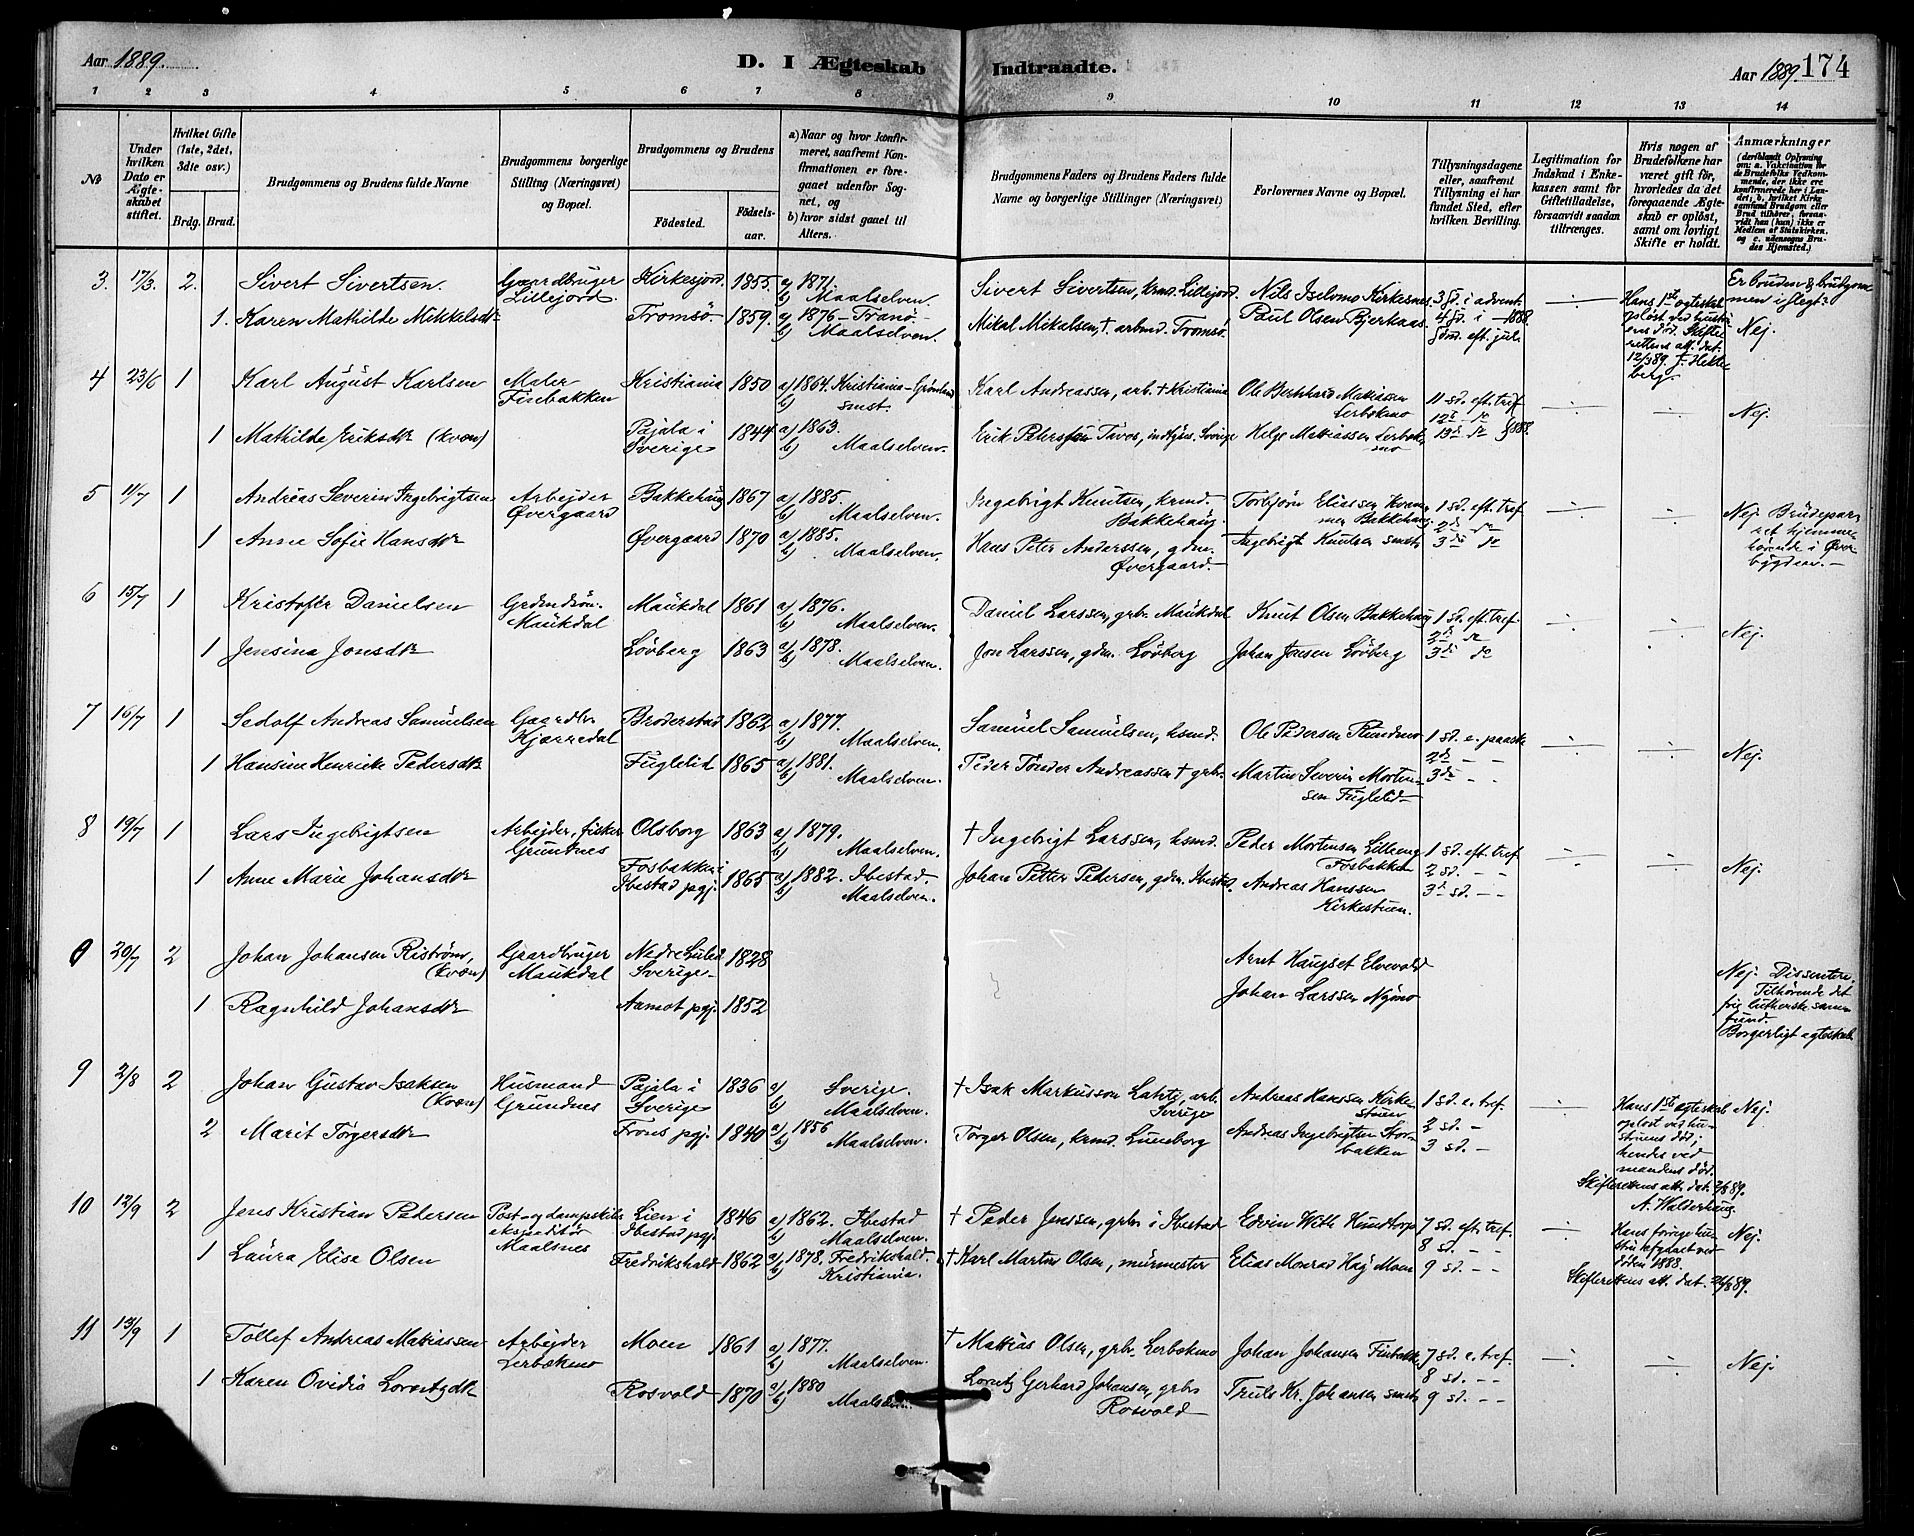 Aar 1889.
D. I Ægteskab Indtraadte.
Aar 1889. 174
1 2 3 4 5 6 7 8 9 10 11 12 13 14
No
Under hvilken Dato er Ægteskabet stiftet.
Hvilket Gifte (1ste, 2det, 3die osv.)
Brdg. Brud.
Brudgommens og Brudens fulde Navne
Brudgommens borgerlige Stilling (Næringsvei) og Bopæl.
Brudgommens og Brudens
Fødested.
Fødselsaar.
a) Naar og hvor konfirmeret, saafremt Konfirmationen er foregaaet udenfor Sognet, og
b) hvor sidst gaaet til Alters.
Brudgommens Faders og Brudens Faders fulde Navne og borgerlige Stillinger (Næringsvei)
Forlovernes Navne og Bopæl.
Tillysningsdagene eller, saafremt Tillysning ei har fundet Sted, efter hvilken Bevilling.
Legitimation for Indskud i Enkekassen samt for Giftetilladelse, forsaavidt saadan tiltrænges.
Hvis nogen af Brudefolkene har været gift før, hvorledes da det foregaaende Ægteskab er opløst, samt om lovligt Skifte er holdt.
Anmærkninger
(deriblandt Oplysning om: a. Vakcination for de Brudefolks Vedkommende, der ikke ere konfirmerede her i Landet; b. hvilket Kirkesamfund Brudgom eller Brud tilhører, forsaavidt han (hun) ikke er Medlem af Statskirken, og c. udensogns Brudes Hjemsted.)
3. 17/3. 2. Sivert Sivertsen. Gaardbruger Lillejord. Kirkesjord 1855. a) 1871. b) Maalselven. Sivert Sivertsen, krmd. Lillejord. Nils Iselvmo Kirkesnes 3 sd. i advent Er bruden & brudgommen i slegt?
1. Karen Mathilde Mikkelsdtr Tromsø. 1859. a) 1876 – Tranø – b) Maalselven. Mikal Mikalsen, †. arbmd. Tromsø. Paul Olsen Bjerkaas 4 sd. i – 1888. sdm. eft. jul Nej.
Hans 1ste ægteskab opløst ved hustruens død. Skifterettens att. dat. 12/3 89
4 23/6 1 Karl August Karlsen Maler Finbakken Kristiania 1850 a) 1864. Kristiania – Grønland b) smst. Karl Andreassen, arb. † Kristiania Ole Bernhard Matiassen Lerbekmo 11 sd. eft. tref.
1 Mathilde Eriksdtr (kvæn) Pajala i Sverige 1844 a) 1863. b) Maalselven. Erik Petersson Tavos, indtgsm. Sverige Helge Mattiassen Lerbekmo 12te do 13de do 1888. Nej.
5 11/7 1 Andreas Severin Ingebrigtsen Arbejder Øvergaard Bakkehaug 1867 a) 1885. b) Maalselven. Ingebrigt Knutsen, krmd. Bakkehaug. Torbjørn Eliassen Bakkehaug 1 sd. eft. tref
1 Anne Sofie Hansdtr Øvergaard 1870 a) 1885. b) Maalselven. Hans Peter Anderssen, gdm. Øvergaard. Ingebrigt Knutsen smsts 2de do 3de do Nej. Brudeparret hjemmehørende i Øverbygden. –
6 15/7 1 Kristofer Danielsen Maukdal Maukdal 1861 a) 1876. b) Maalselven. Daniel Larssen, grbr. Maukdal Knut Olsen Bakkehaug 1 sd. eft. tref
1 Jensina Jonsdtr Løvberg 1863 a) 1878. b) Maalselven. Jon Larssen, gdm. Løvberg Johan Jonsen Løvberg 2de do 3de do Nej.
7 16/7 1 Sedolf Andreas Samuelsen Gaardbr. Kjærredal Broderstad 1862 a) 1877. b) Maalselven. Samuel Samuelsen, hsmd. Ole Pedersen Rundmo 1 sd. e. paaske
1 Hansine Henrikke Pedersdtr Fuglelid 1865 a) 1881. b) Maalselven. Peder Tønder Andreassen † grbr. Martin Severin Mortensen Fuglelid – 2de – – 3de – – Nej.
8 19/7 1 Lars Ingebrigtsen Arbejder, fisker Grundnes Olsborg 1863 a) 1879. b) Maalselven. † Ingebrigt Larssen, hsmd. Peder Mortensen Lilleeng Fosbakken 1 sd. eft. tref.
1 Anne Marie Johansdtr Fosbakken i Ibestad pgj. 1865 a) 1882. Ibestad. b) Maalselven. Johan Petter Pedersen, gdm. Ibestad. Andreas Hanssen Kirkestuen. 2 sd. – – 3 sd. – – Nej.
20/7 2 Johan Johansen Ristrøm, (kvæn) Gaardbruger Maukdal Nedre Luleå Sverige – 1828 Arnt Haugset Elvevold
1 Ragnhild Johansdtr Aamot pgj. 1852 Johan Larssen Nymo Nej. Dissentere. Tilhørende det frie lutherske samfund. Borgerligt egteskab
9 2/8 2 Johan Gustav Isaksen (kvæn) Husmand Grundnes Pajala i Sverige 1836 a) Sverige. b) Maalselven. † Isak Markusson Lahti, arb. Sverige Andreas Hanssen Kirkestuen 1 sd. e. tref.
2 Marit Torgersdtr Frons pgj. 1840 a) 1856 b) Maalselven. Torger Olsen, krmd. Luneborg Andreas Ingebrigtsen Storbakken 2 sd. – 3 sd. –
Hans 1ste egteskab opløst ved hustruens død; hendes ved mandens død. Skifterettens att. dat. 2/8 89. A. Halsethaug. Nej.
10 12/9 2 Jens Kristian Pedersen Post- og dampskibsekspeditør Maalsnes Lien i Ibestad pgj. 1846 a) 1862. Ibestad b) Maalselven. † Peder Jenssen, grbr. i Ibestad Edvin With Hundtorp 7 sd. eft. tref.
1 Laura Elisa Olsen Fredrikshald 1862 a) 1878. Fredrikshald. b) Kristiania. † Karl Martin Olsen, murmester Elias Monrad Høg Moen 8 sd. – – 9 sd. – –
Hans forrige hustru afgaaet ved døden 1888. Skifterettens att. dat. 26/8 89. Nej.
11 13/9 1 Tollef Andreas Matiassen Arbejder Lerbekmo Moen 1861 a) 1877. b) Maalselven. † Mathias Olsen, grbr. Lerbekmo Johan Johansen Finbakk. 7 sd. e. tref.
1 Karen Ovidia Lorentzdtr Rosvold 1870 a) 1880 b) Maalselven. Lorentz Gerhard Johansen, grbr. Rosvold Truls Kr. Johansen smsts 8 sd. – – 9 sd. – – Nej.